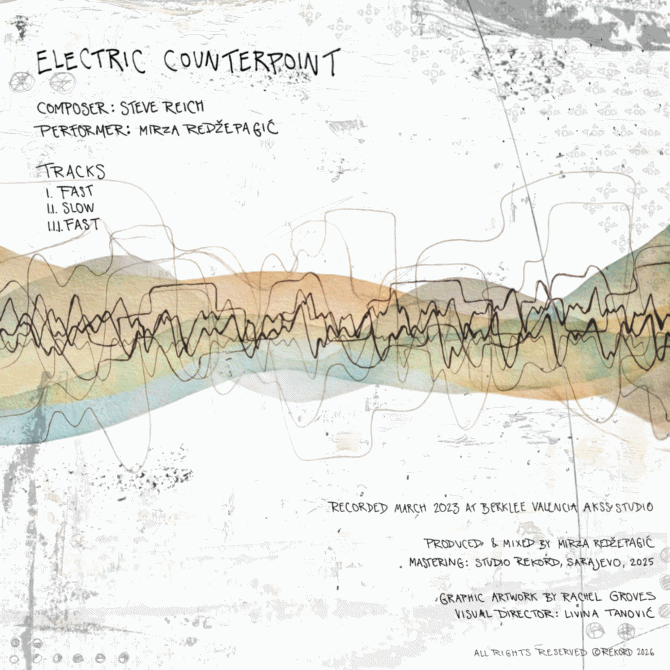 ELECTRIC COUNTERPOINT
COMPOSER: STEVE REICH
PERFORMER: MIRZA REDŽEPAGIĆ
TRACKS
I. FAST
II. SLOW
III. FAST
RECORDED MARCH 2023 AT BERKLEE VALENCIA AKSS STUDIO
PRODUCED & MIXED BY MIRZA REDŽEPAGIĆ
MASTERING: STUDIO REKORD, SARAJEVO, 2025
GRAPHIC ARTWORK BY RACHEL GROVES
VISUAL DIRECTOR: LIVINA TANOVIĆ
ALL RIGHTS RESERVED ©REKORD 2026